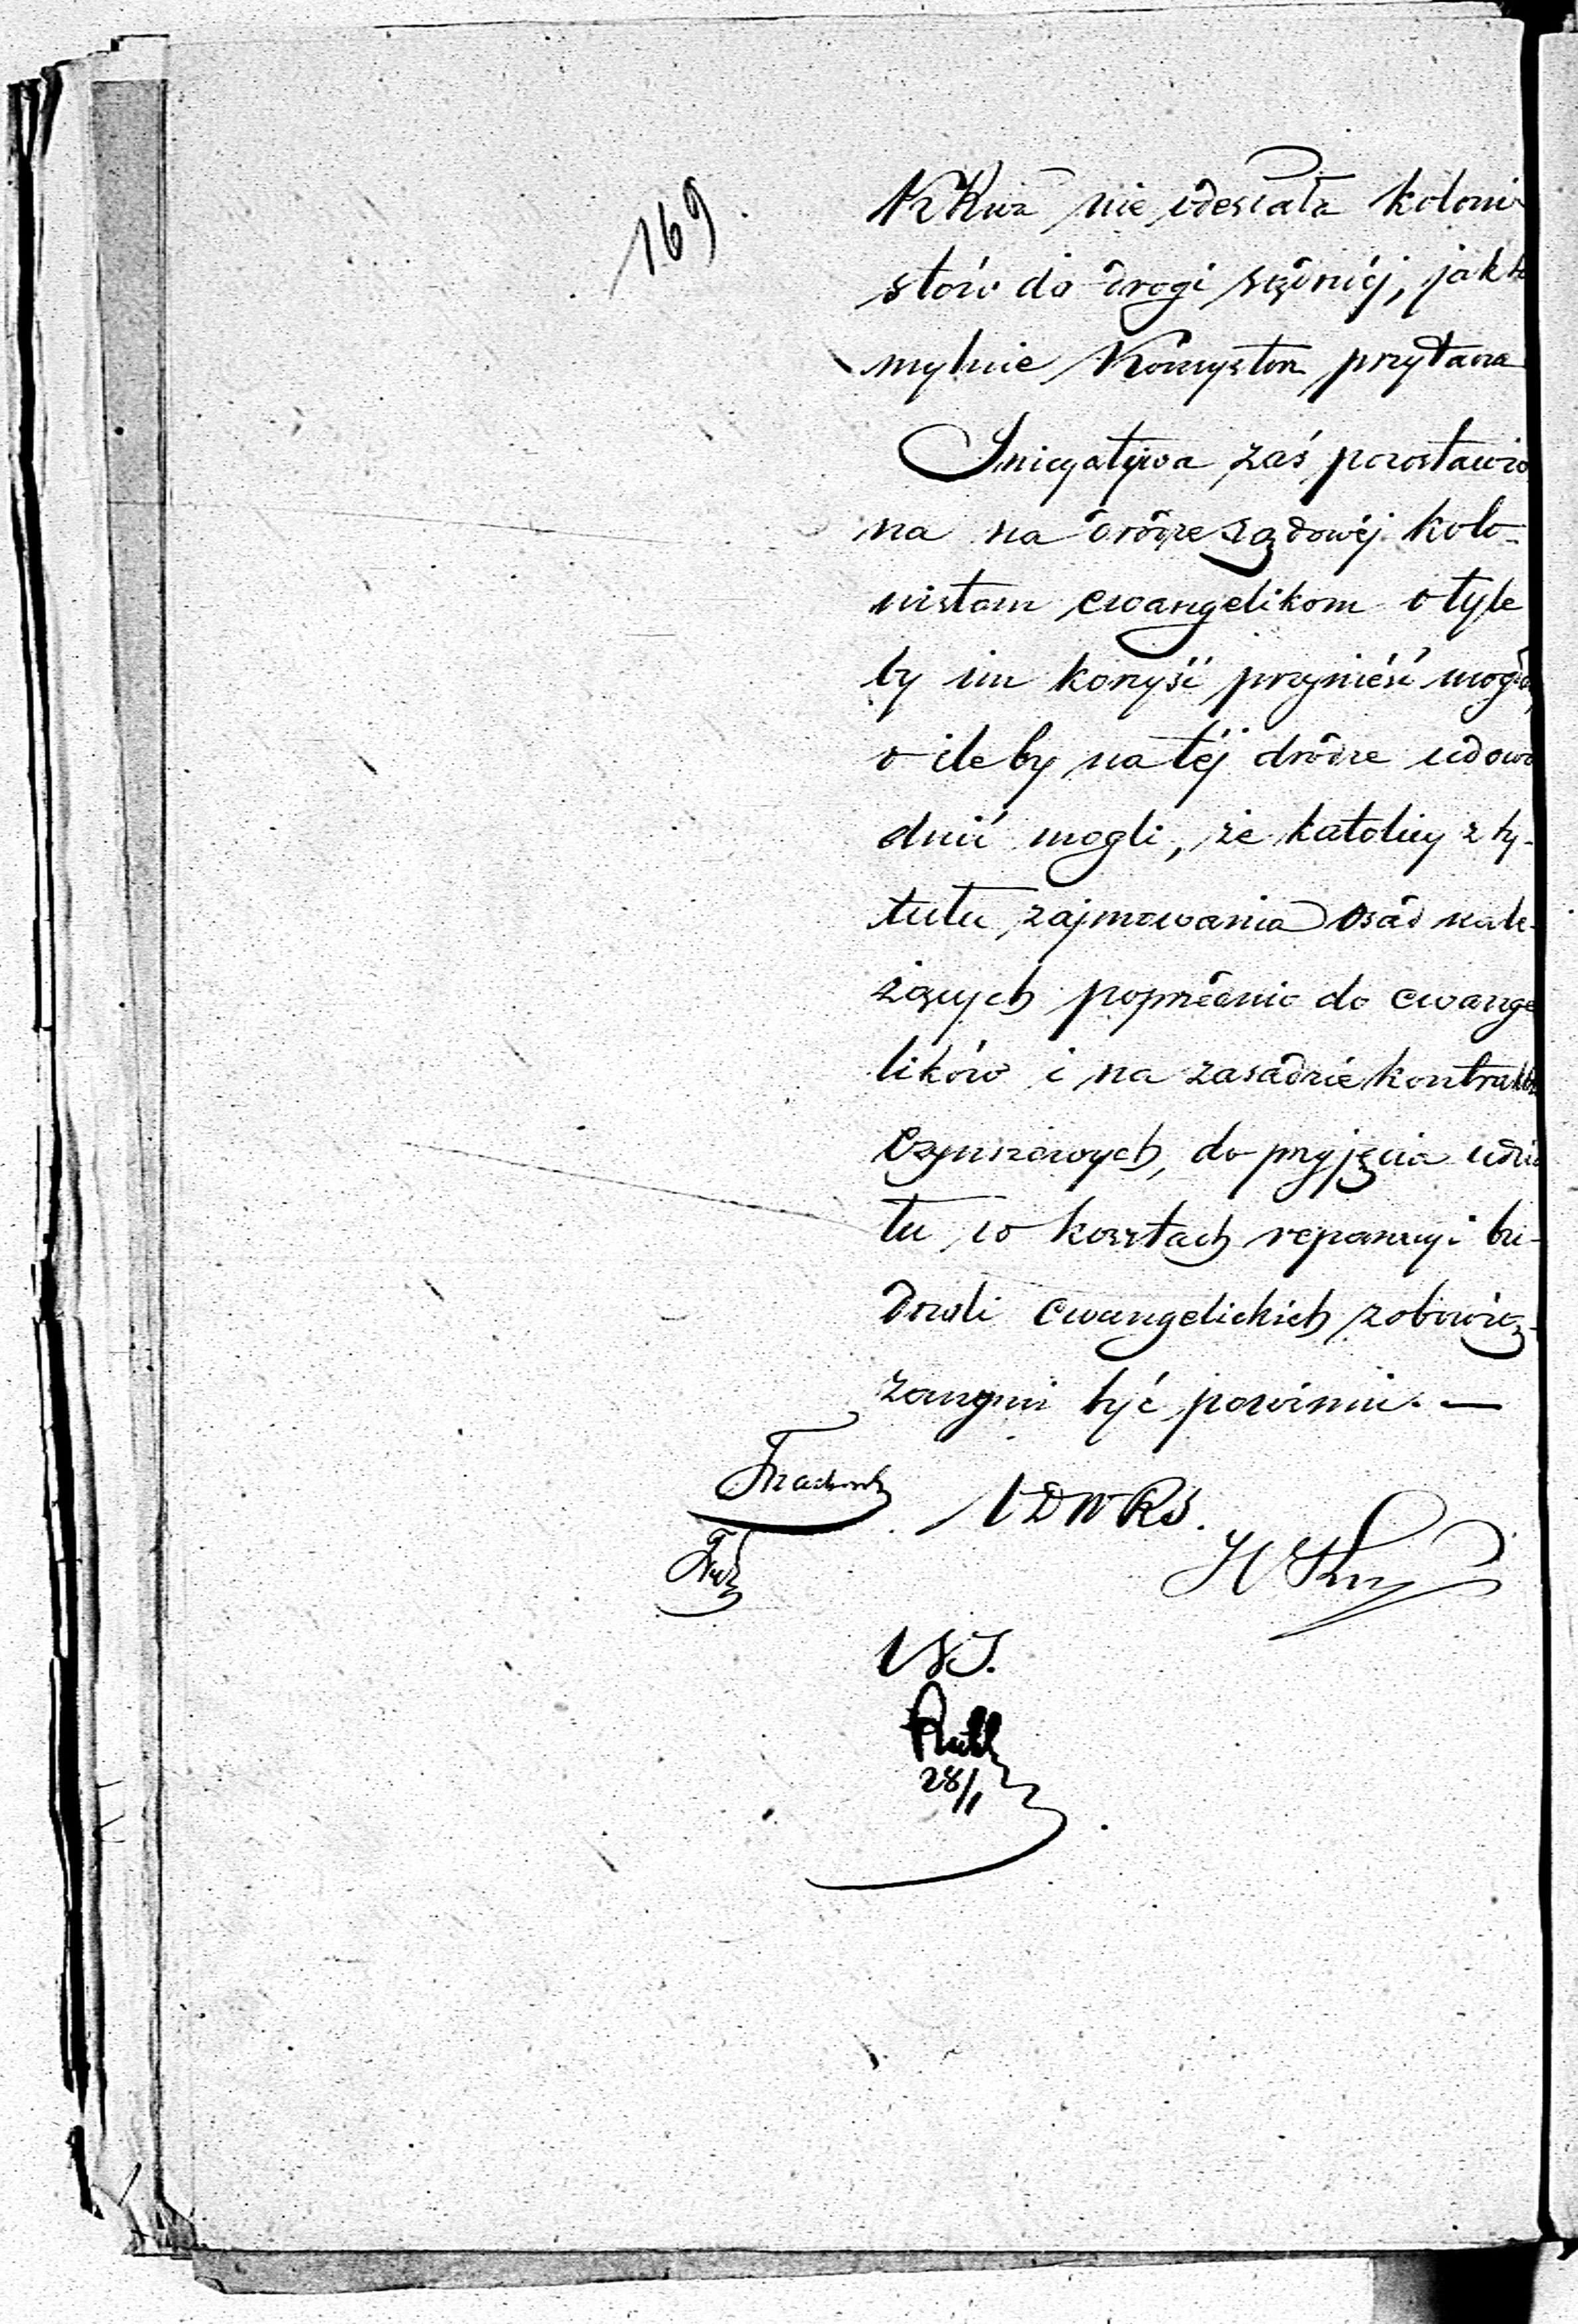 169.
nie odesłała koloni-
stów do drogi sądowéj, jak to
mylnie Konsystorz przytacza
Inicyatywa zaś pozostawio
na na drodze sądowéj kolo-
nistom ewangelikom o tyle
by im korzyść przynieść mogła,
o ile by na téj drodze udowo
dnić mogli, że katolicy z ty-
tułu zajmowania osad nale-
żących poprzednio do ewange
lików i na zasadzie kontraktów
czynszowych, do przyjęcia udzia
łu w kosztach reparacyi bu-
dowli ewangelickich zobowią-
zanymi być powinni. —
28/1